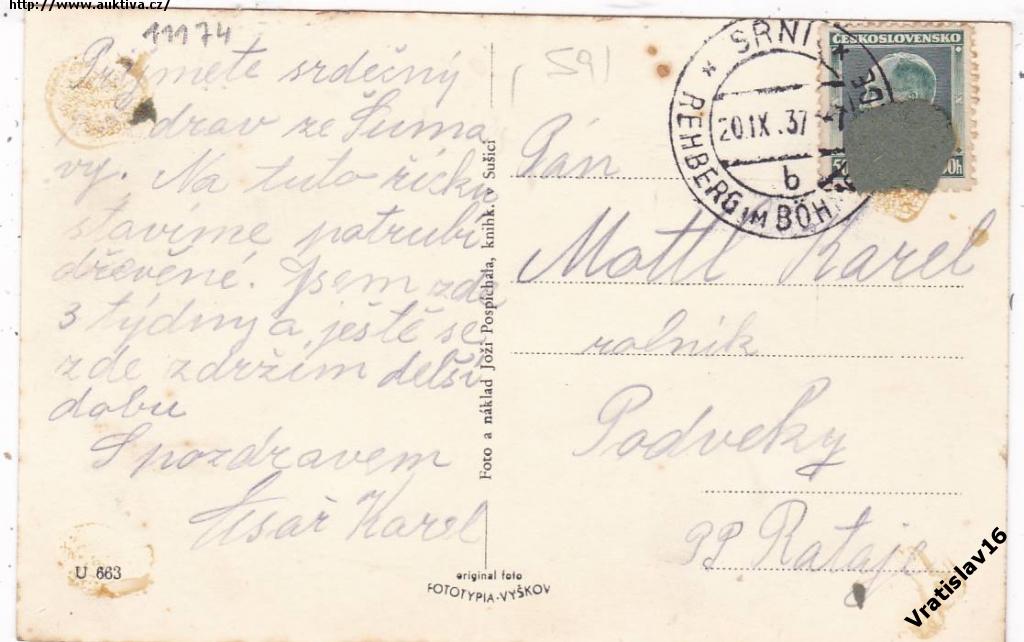 http://www.auktiva.cz/
11174
591
Přijmete srdečný
pozdrav ze Šuma
vy. Na tuto říčku
stavíme potrubí
dřevěné. Jsem zde
3 týdny a ještě se
zde zdržím delší
dobu
S pozdravem
Císař Karel
U 663
Foto a náklad Joži Pospíchala, knihk. v Sušici
original foto
FOTOTYPIA-VYŠKOV
SRNÍ
20.IX.37
b
REHBERG IM BÖHM
ČESKOSLOVENSKO
Pán
Mottl Karel
rolník
Podveky
PP Rataje
Vratislav16